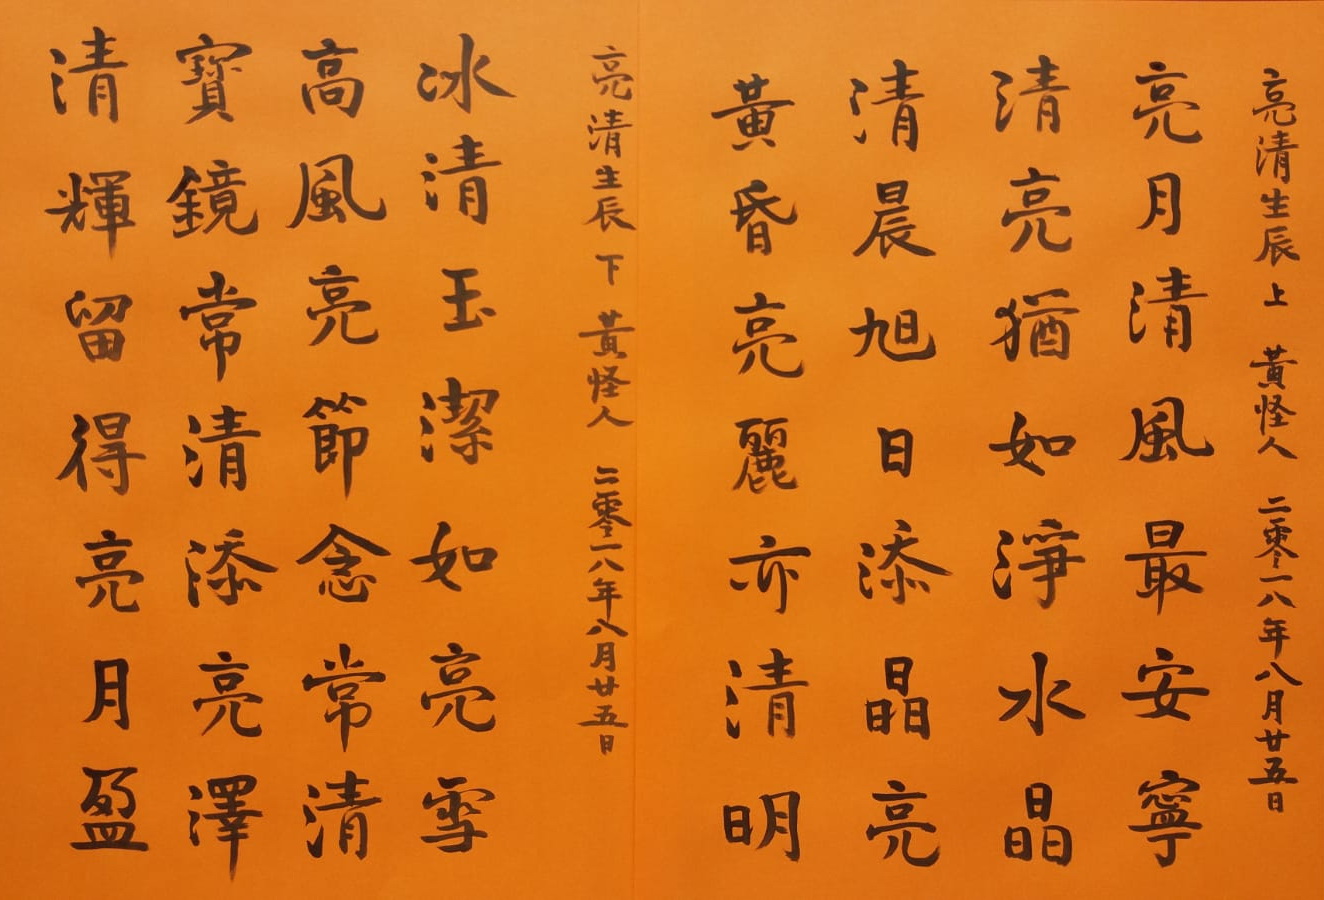 亮清生辰 上 黃怪人 二零一八年八月廿五日
亮月清風最安寧
清亮猶如淨水晶
清晨旭日添晶亮
黃昏亮麗亦清明
亮清生辰 下 黃怪人 二零一八年八月廿五日
冰清玉潔如亮雪
高風亮節念常清
寶鏡常清添亮澤
清輝留得亮月盈